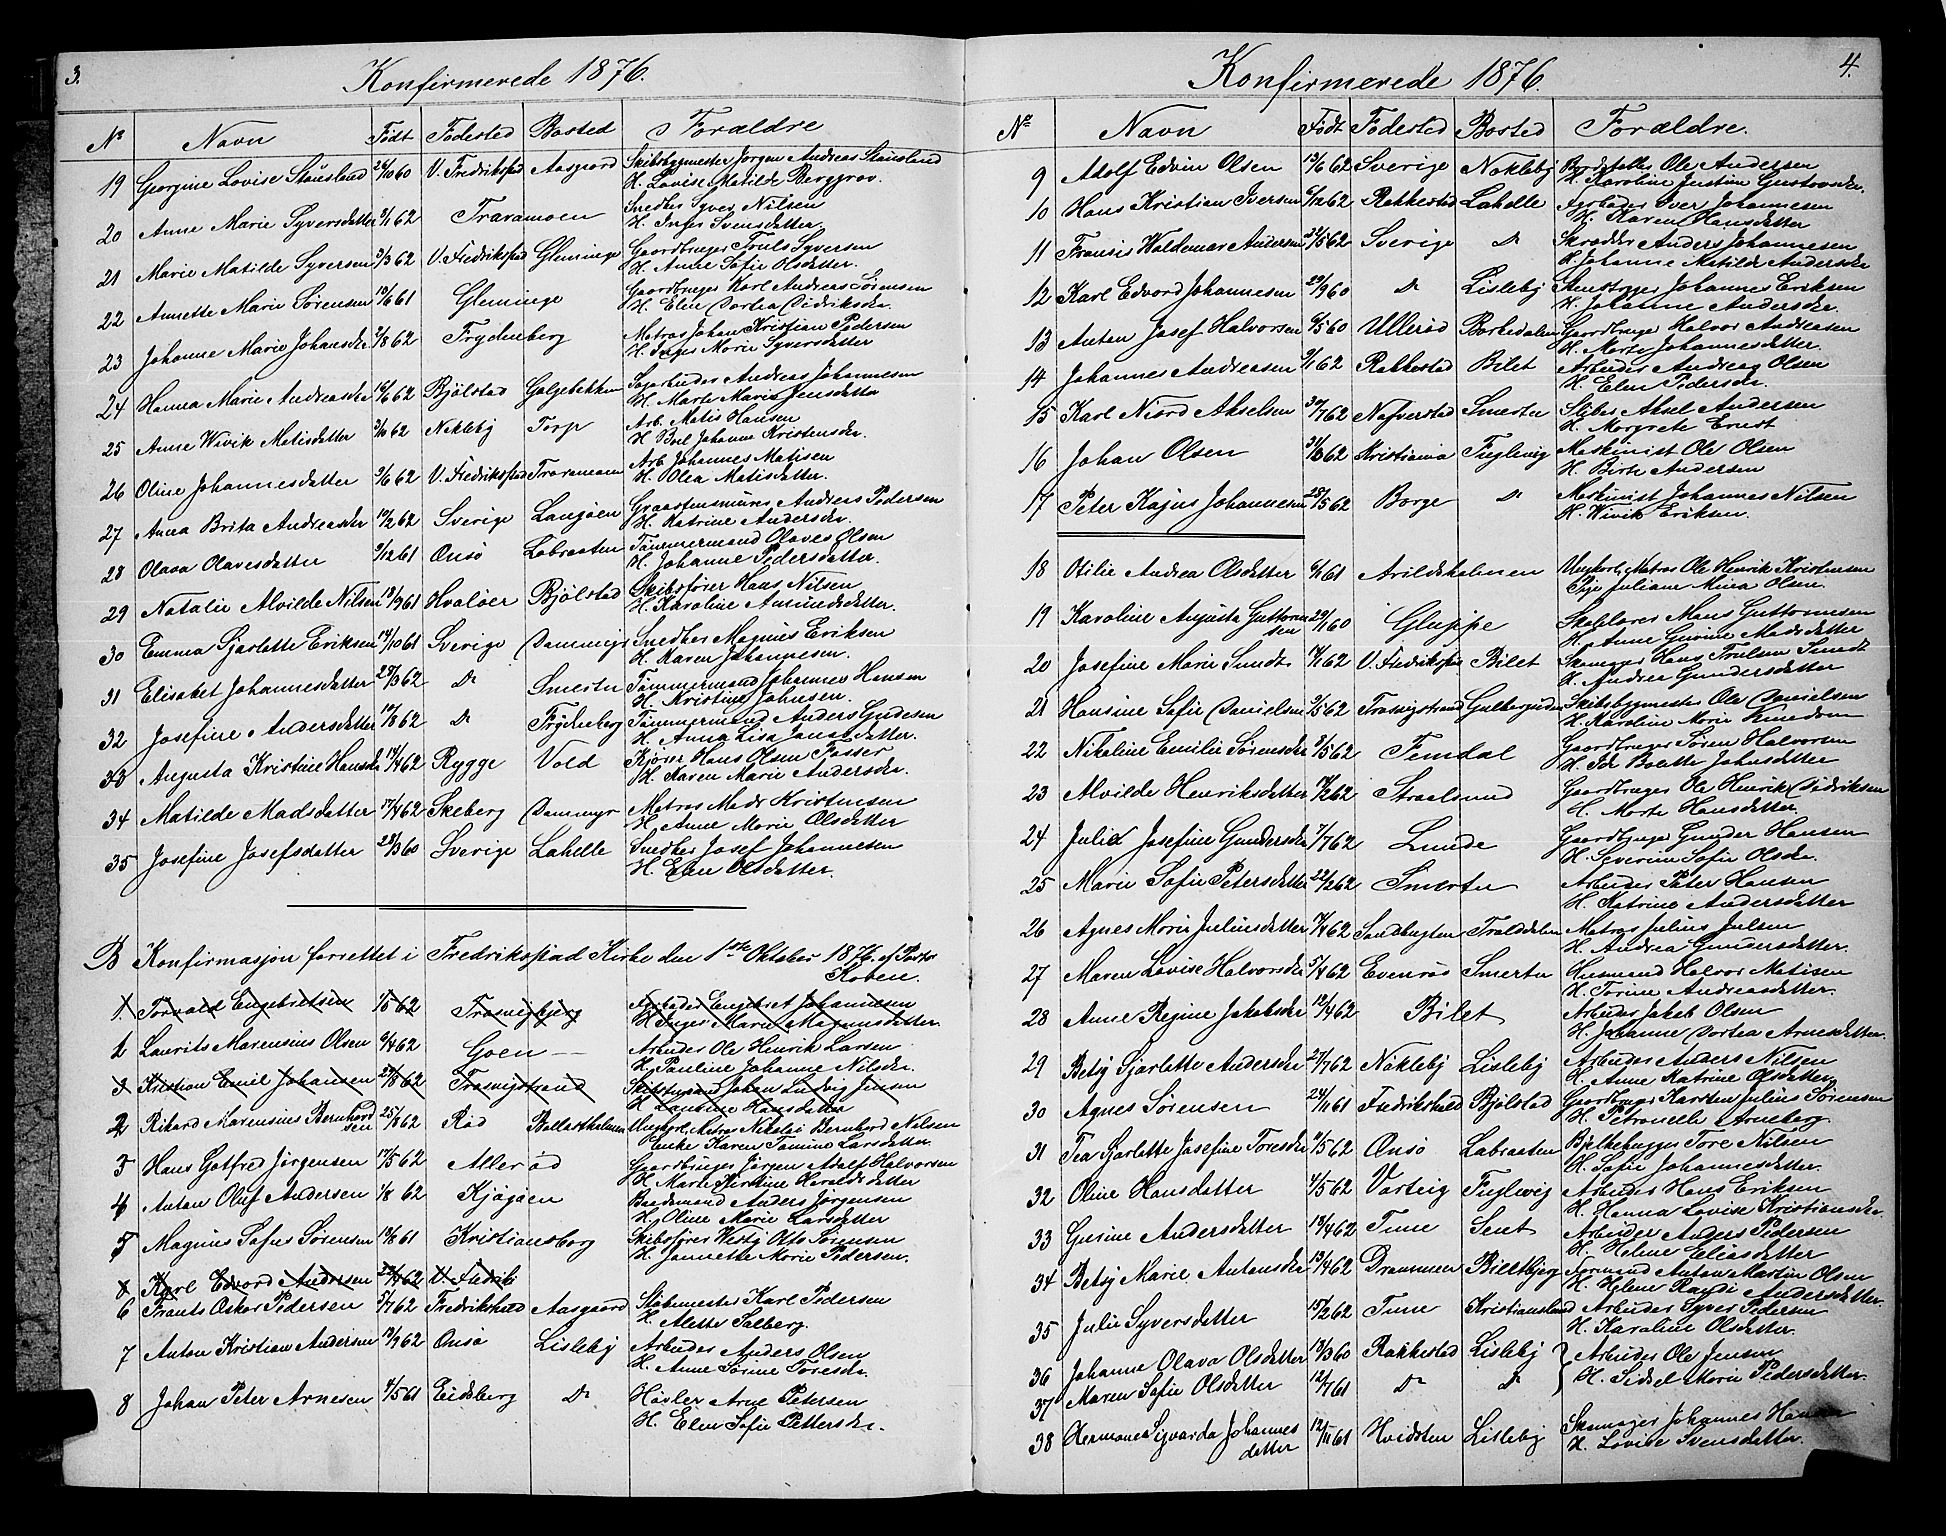 3.
Konfirmerede 1876.
Nº Navn Født Fødested Bosted Forældre
19 Georgine Lovise Stousland 26/10 60 V. Fredriksstad Aasgaard Skibsbygmester Jørgen Andreas Stousland
H. Lovise Matilde Berggrav.
20 Anne Marie Syversdatter 2/1 62 Traramoen Snedker Syver Nilsen
H. Inger Svensdatter
21 Marie Matilde Syversen 3/3 62 V. Fredriksstad Gleminge Gaardbruger Truls Syversen
H. Anne Sofie Olsdatter.
22 Annette Marie Sørensen 10/6 61 Gleminge Gaardbruger Karl Andreas Sørensen
H. Elen Dortea Didriksdr.
23 Johanne Marie Johansdr 2/8 62 Frydenberg Matros Johan Kristian Pedersen
H. Inger Marie Syversdatter
24 Hanna Marie Andreasdr 16/6 62 Bjølstad Galgebakken Sagarbeider Andreas Johannesen
H. Marte Marie Jensdatter
25 Anne Wivik Matisdatter 3/10 62 Nokleby Torp Arb. Matis Hansen
H. Berl Johanne Kristensdr.
26 Oline Johannesdatter 3/6 62 V. Fredriksstad Traramoen Arb Johannes Matisen
H. Olea Matisdatter.
27 Anna Brita Andreasdr 19/2 62 Sverige Langøen Graastensmurer Andreas Pedersen
H. Katrine Andersdr.
28 Olava Olavesdatter 9/12 61 Onsø Labraaten Tømmermand Olaves Olsen
H. Johanne Pedersdatter.
29 Natalie Alvilde Nilsen 18/9 61 Hvaløer Bjølstad Skibsfører Hans Nilsen
H. Karoline Amundsdatter.
30 Emma Sjarlotte Eriksen 14/10 61 Sverige Dammyr Snedker Magnus Eriksen
H. Karen Johannesen.
31 Elisabet Johannesdatter 28/3 62 Do Smertu Tømmermand Johannes Hansen
H. Kristine Johnsen.
32 Josefine Andersdatter 17/8 62 Do Frydenberg Tømmermand Anders Gudesen
H. Anna Lisa Jonasdatter.
33 Augusta Kristine Hansdr 14/4 62 Rygge Vold Kjører Hans Olsen Fosser
H. Karen Marie Andersdr.
34 Matilde Madsdatter 17/4 62 Skeberg Dammyr Matros Mads Kristensen
H. Anne Marie Olsdatter
35 Josefine Josefsdatter 28/3 60 Sverige Lahelle Snedker Josef Johannesen
H. Elen Olsdatter.
B Konfirmasjon forrettet i Fredriksstad Kirke den 1ste Oktober 1876 af Pastor
Koben.
1. Torvald Engebretsen 1/5 62 Trosvigbjerg Arbeider Engebret Johannesen
H. Inger Marie Magnusdatter.
2 Laurits Marensius Olsen 9/4 62 Goen — Arbeider Ole Henrik Larsen
H. Pauline Johanne Nilsdr.
3 Kristian Emil Johansen 24/8 62 Trosvigstrand Skibstømmer Johan Ludvig Jensen
H. Lantine Hansdatter
2 Rikard Marensius Bernhard 25/8 62 Rød Ballastholmen Ungkarl Matr Nikolai Bernhard Nilsen
sen Enke Karen Tomine Larsdatter.
3 Hans Gotfred Jørgensen 17/5 62 Allerød Gaardbruger Jørgen Adolf Halvorsen
H. Marte Kirstine Haraldsdatter
4 Anton Oluf Andersen 1/8 62 Kjøgøen Baadsmand Anders Jørgensen
H. Oline Marie Larsdatter
5 Magnus Sofus Sørensen 19/8 61 Kristiansborg Skibsfører Vestby Otto Sørensen
H. Jannette Marie Pedersen.
8 Karl Edvard Andersen 29/4 62 V. Fredrik
6 Frants Oskar Pedersen 7/7 62 Fredrikshald Aasgaard Støbemester Karl Pedersen
H. Alette Solberg.
7 Anton Kristian Andersen 19/9 62 Onsø Lisleby Arbeider Anders Olsen
H. Anne Sørine Toresdr.
8 Johan Peter Arnesen 4/5 61 Eidsberg Do Høvler Arne Petersen
H. Elen Sofie Pettersdr.
4.
Konfirmerede 1876.
Nº Navn Født Fødested Bosted Forældre.
9 Adolf Edvin Olsen 13/6 62 Sverige Nokleby Bordstabler Ole Andersen
H. Karoline Justine Gustavsdr.
10 Hans Kristian Iversen 6/12 62 Rakkestad Lahelle Agrbeider Iver Johannesen
H. Karen Hansdatter
11 Fransis Waldemar Andersen 24/5 62 Sverige Do Skrædder Anders Johannesen
H. Johanne Matilde Andersdr
12 Karl Edvard Johannesen 29/9 60 Do Lisleby Stenbryger Johannes Eriksen
H. Johanne Andersdr.
13 Anton Josef Halvorsen 6/5 60 Ullerød Borkedalen Gaardbruger Halvor Andreasen
H. Marte Johannesdatter.
14 Johannes Andreasen 9/1 62 Rakkestad Bilet Arbeider Andreas Olsen
H. Elen Pedersdr.
15 Karl Niord Akselsen 30/7 62 Nafverstad Smertu Sliber Aksel Andersen
H. Margrete Ernst
16 Johan Olsen 31/8 62 Kristiania Fuglevig Maskinist Ole Olsen
H. Berte Andersen
17 Peter Kajus Johannesen 28/5 62 Borge Do Maskinist Johannes Nilsen
H. Wivik Eriksen.
18 Otilie Andrea Olsdatter 6/1 61 Arildsholmen Ungkarl, Matros Ole Henrik Kristensen
Pige Juliane Mina Olsen
19 Karoline Augusta Guttorm 29/1 60 Gluppe Skoblarer Mons Guttormsen
sen H. Anne Gurine Madsdatter
20 Josefine Marie Sundt 14/1 62 V. Fredriksstad Bilet Skomager Hans Trulsen Sundt
H. Andrea Gundersdatter
21 Hansine Sofie Danielsen 3/5 62 Trosvigstrand Gulbergsiden Skibsbygmester Ole Danielsen
H. Karoline Marie Simensen
22 Nikoline Emilie Sørensdr 3/5 62 Femdal Gaardbruger Søren Halvorsen
H. Ida Bolette Johnsdatter
23 Alvilde Henriksdatter 17/2 62 Straalsund Gaardbruger Ole Henrik Didriksen
H. Marte Hansdatter
24 Julia Josefine Gundersdr 7/7 62 Lunde Gaardbruger Gunder Hansen
H. Severine Sofie Olsdr.
25 Marie Sofie Petersdatter 22/2 62 Smertu Arbeider Peter Hansen
H. Katrine Andersdatter
26 Agnes Marie Juliusdatter 11/4 62 Sandbugten Tralddalen Matros Julius Julsen
H. Andrea Gundersdatter.
27 Maren Lovise Halvorsdr 5/4 62 Evenrød Smertu Husmand Halvor Matisen
H. Torine Andreasdatter.
28 Anne Regine Jakobsdr 12/4 62 Bilet Arbeider Jakob Olsen
H. Johanne Dortea Arnesdatter.
29 Betsy Sjarlotte Andersdr 27/7 62 Nokleby Lisleby Arbeider Anders Nilsen
H. Anne Katrine Olsdatter
30 Agnes Sørensen 24/11 61 Fredrikshald Bjølstad Gaardbruger Karsten Julius Sørensen
H. Petronelle Arneberg.
31 Tea Sjarlotte Josefine Toresdr 9/5 62 Onsø Labraaten Bjelkehugger Tore Nilsen
H. Sofie Johannesdatter.
32 Oline Hansdatter 4/5 62 Varteig Fuglevig Arbeider Hans Eriksen
H. Hanna Lovise Kristiansdr.
33 Gurine Andersdatter 19/4 62 Tune Sent Arbeider Anders Pedersen
H. Helene Eliasdatter
34 Betsy Marie Antonsdr 13/4 62 Drammen Biletbjerg Formand Anton Martin Olsen
H. Helene Randi Andersdatter.
35 Julie Syversdatter 15/2 62 Tune Kristianslund Arbeider Syver Pedersen
H. Karoline Olsdatter.
36 Johanne Olava Olsdatter 13/3 60 Rakkestad Lisleby Arbeider Ole Jensen
37 Maren Sofie Olsdatter 12/7 61 Do Do H. Sidsel Marie Pedersdatter.
38 Hermanea Sigvarda Johannes 12/11 61 Hvidsten Lisleby Skomager Johannes Hansen
datter H. Lovise Svensdatter.